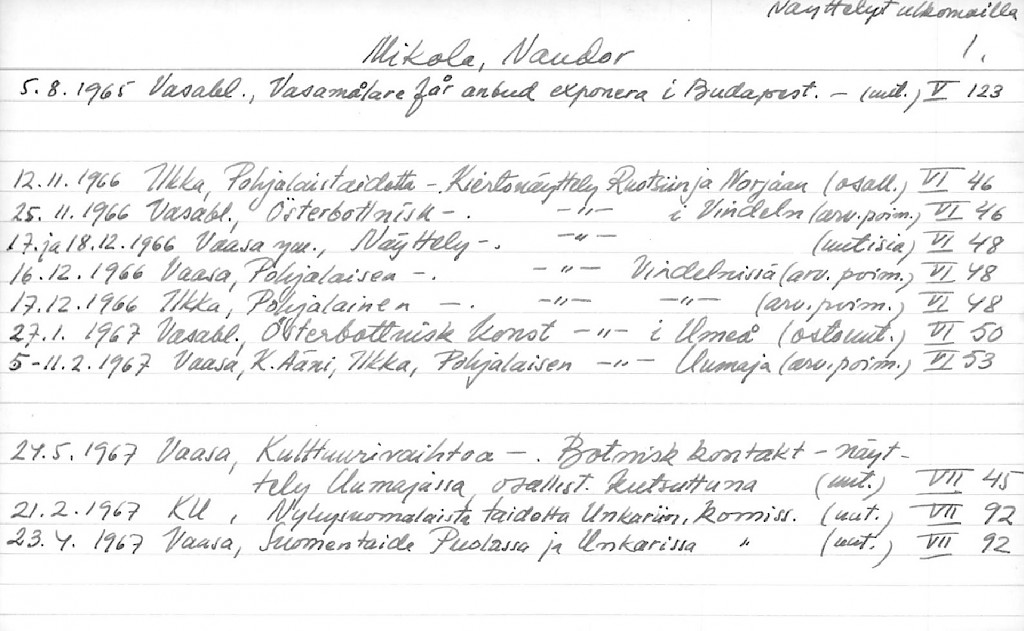 Näyttelyt ulkomailla
Mikola, Nandor 1.
5.8.1965 Vasabl., Vasamålare får anbud exponera i Budapest. – (uut.) V 123
12.11.1966 Ilkka, Pohjalaistaidetta –. Kiertonäyttely Ruotsiin ja Norjaan (osall.) VI 46
25.11.1966 Vasabl., Österbottnisk –. –"– i Vindeln (arv.poim.) VI 46
17. ja 18.12.1966 Vaasa ym., Näyttely –. –"– (uutisia) VI 48
16.12.1966 Vaasa, Pohjalaisen –. –"– Vindelnissä (arv. poim.) VI 48
17.12.1966 Ilkka, Pohjalainen –. –"– –"– (arv.poim.) VI 48
27.1.1967 Vasabl., Österbottnisk konst –"– i Umeå (ostouut.) VI 50
5–11.2.1967 Vaasa, K. Ääni, Ilkka, Pohjalaisen –"– Uumaja (arv.poim.) VI 53
24.5.1967 Vaasa, Kulttuurivaihtoa –. Botnisk kontakt – näyt-
tely Uumajassa, osallist. kutsuttuna (uut.) VII 45
21.2.1967 KU, Nykysuomalaista taidetta Unkariin, komiss. (uut.) VII 92
23.4.1967 Vaasa, Suomen taide Puolassa ja Unkarissa " (uut.) VII 92